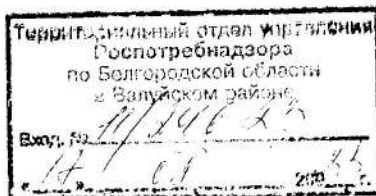 Территориальный отдел управления
Роспотребнадзора
по Белгородской области
в Валуйском районе
Вход. №
« 17 » 20